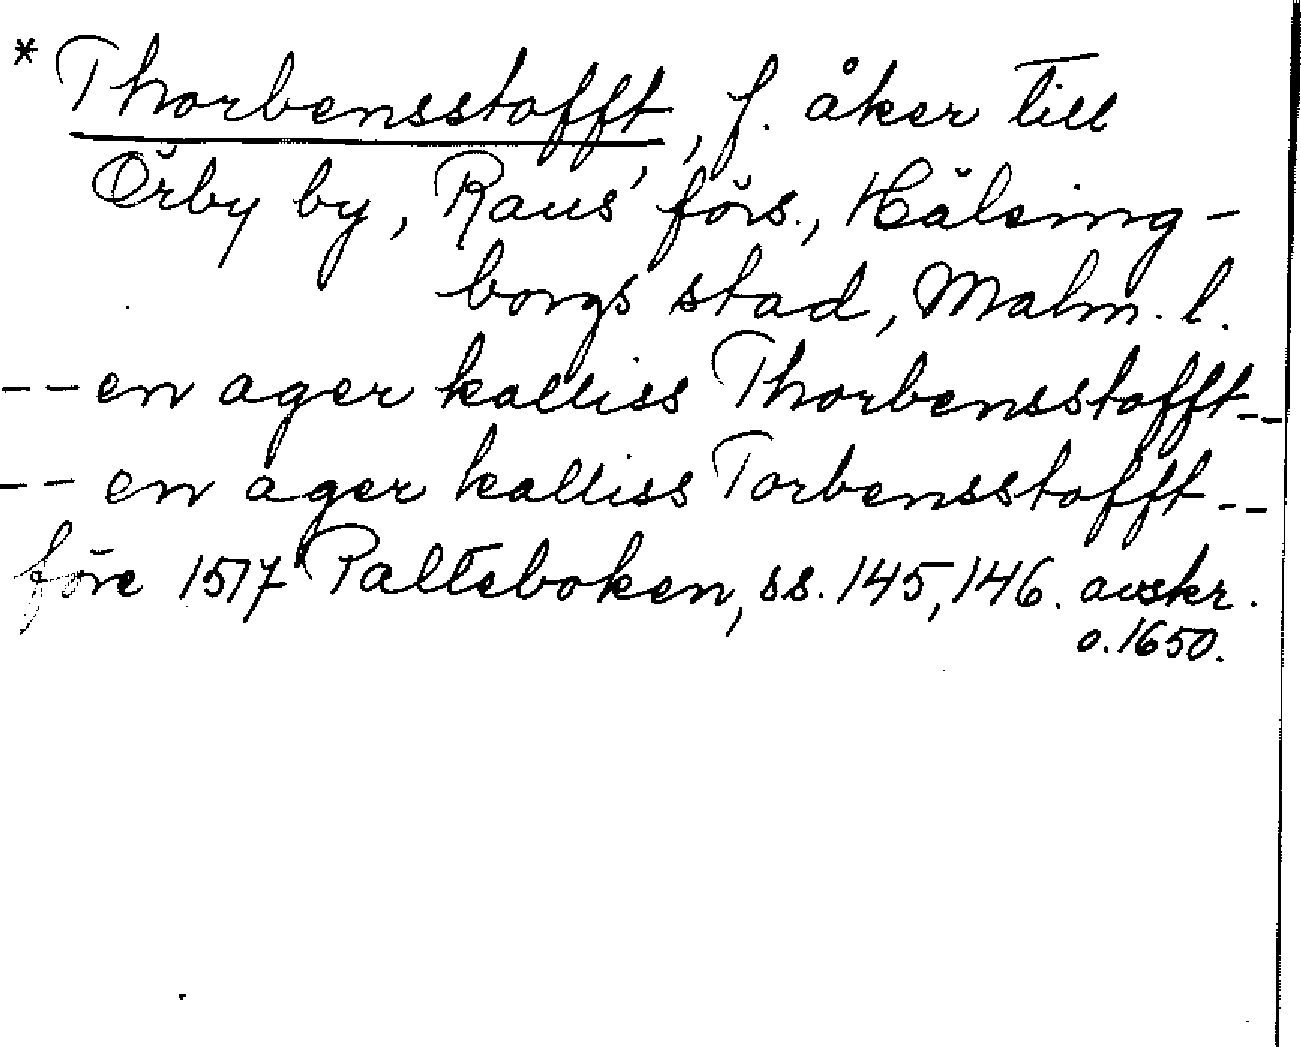 * Thorbensstofft, f. åker till
Örby by, Raus' förs., Hälsing-
borgs stad, Malm. l.
-- en ager kalliss Thorbensstofft --
-- en ager kalliss Torbensstofft --
före 1517 Palteboken, ss. 145, 146. avskr.
o. 1650.